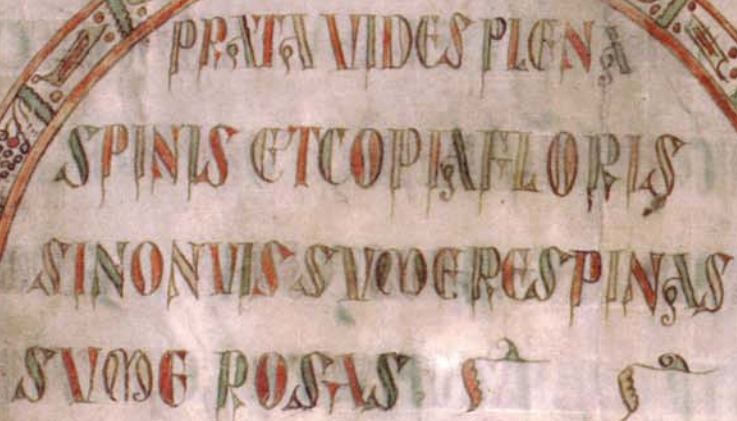 PRATA VIDES PLENA
SPINIS ET COPIA FLORIS
SI NON VIS SUMERE SPINAS
SUME ROSAS